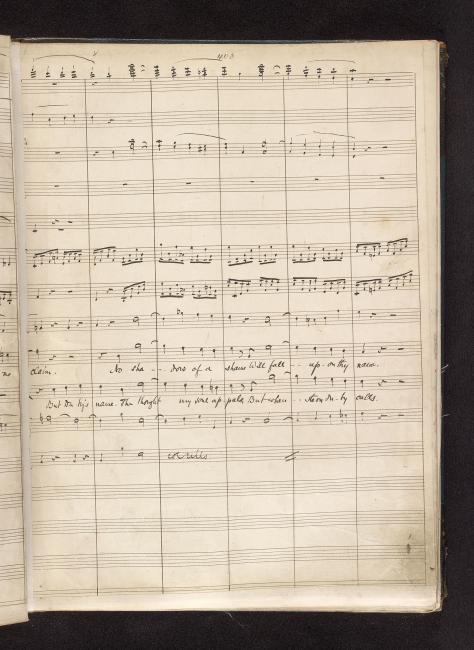 403
no
claim. No sha - - dow of a shame will fall - - up - on thy name.
But On his name. The thought my soul ap - pals But when - - thou by calls.
col Cello